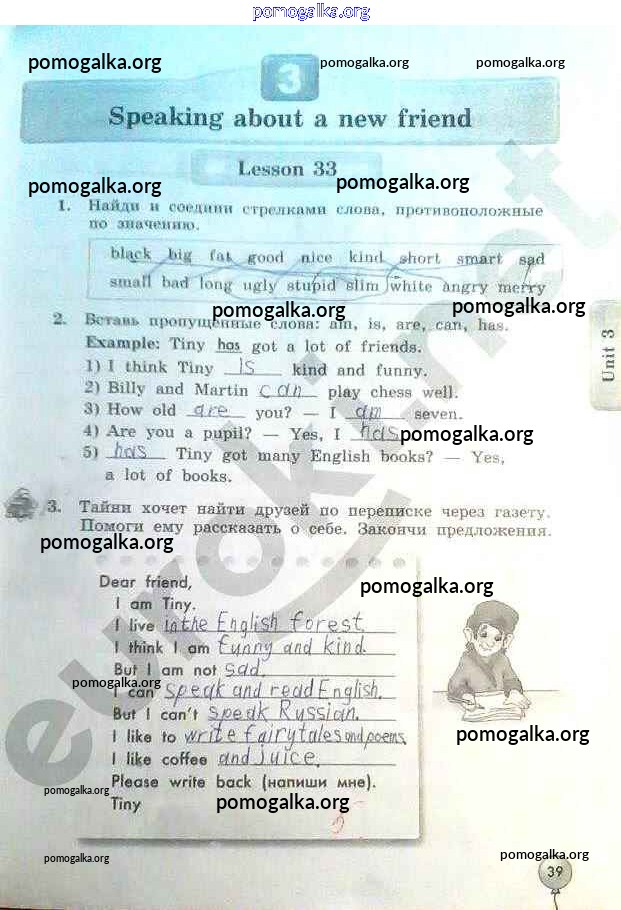 pomogalka.org
pomogalka.org pomogalka.org pomogalka.org
3
Speaking about a new friend
Lesson 33
pomogalka.org pomogalka.org
1. Найди и соедини стрелками слова, противоположные
по значению.
black big fat good nice kind short smart sad
small bad long ugly stupid slim white angry merry
pomogalka.org pomogalka.org
2. Вставь пропущенные слова: am, is, are, can, has.
Example: Tiny has got a lot of friends.
1) I think Tiny is kind and funny.
2) Billy and Martin can play chess well.
3) How old are you? — I am seven.
4) Are you a pupil? — Yes, I has
pomogalka.org
5) has Tiny got many English books? — Yes,
a lot of books.
Unit 3
3. Тайни хочет найти друзей по переписке через газету.
Помоги ему рассказать о себе. Закончи предложения.
pomogalka.org
Dear friend,
pomogalka.org
I am Tiny.
I live in the English forest.
I think I am funny and kind.
But I am not sad.
pomogalka.org
I can speak and read English.
But I can't speak Russian.
I like to write fairytales and poems.
pomogalka.org
I like coffee and juice.
Please write back (напиши мне).
pomogalka.org
Tiny
pomogalka.org
pomogalka.org pomogalka.org
39
eurokі.net